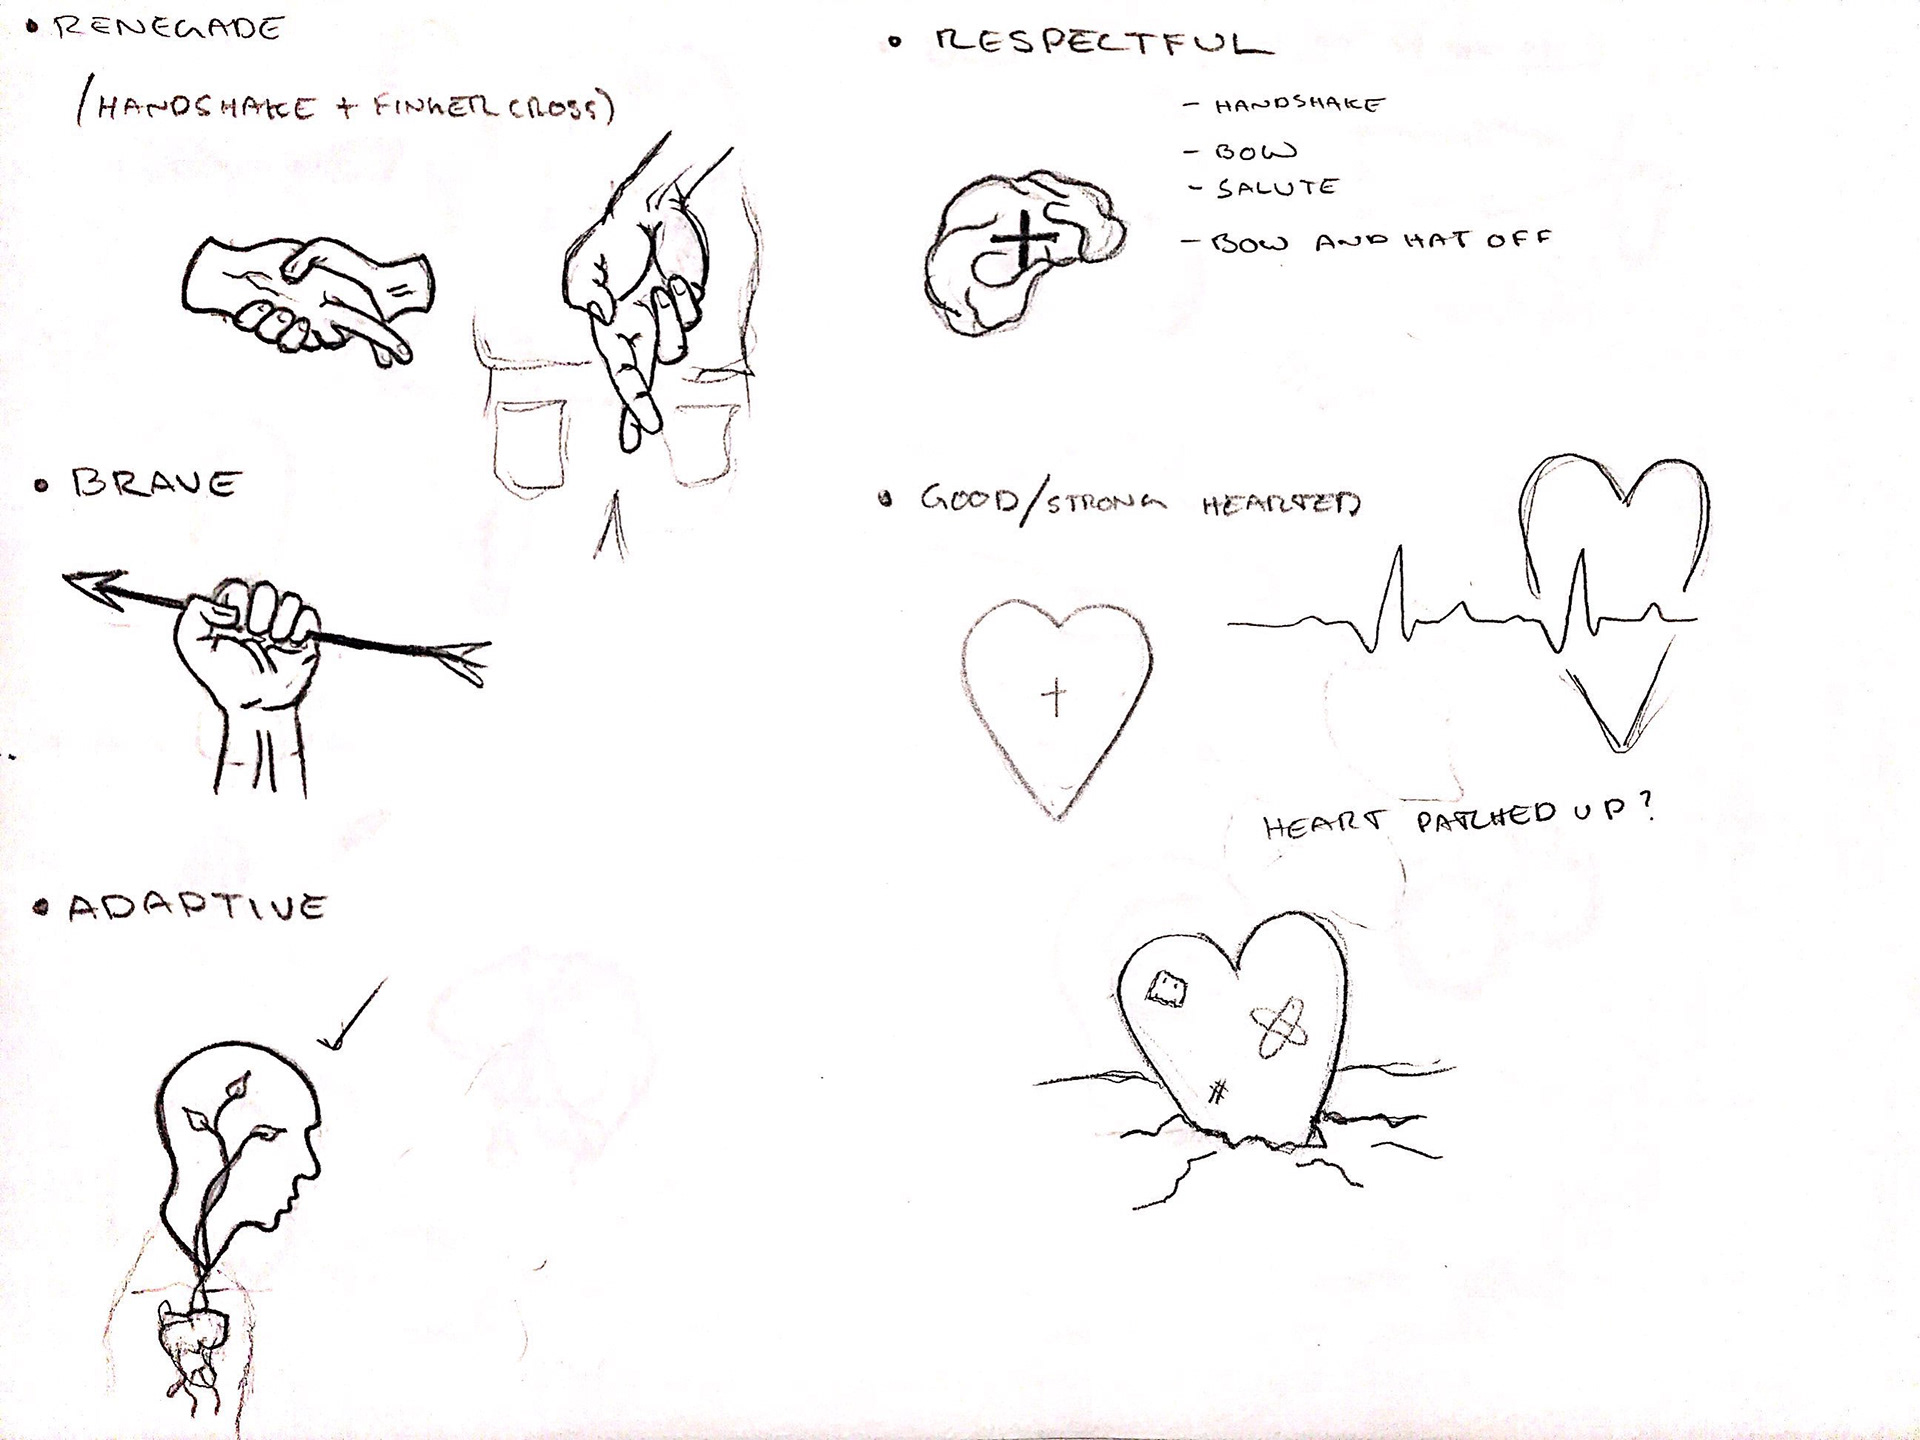 • RENEGADE
(HANDSHAKE + FINGER CROSS)
• BRAVE
• ADAPTIVE
• RESPECTFUL
- HANDSHAKE
- BOW
- SALUTE
- BOW AND HAT OFF
• GOOD/STRONG HEARTED
HEART PATCHED UP?